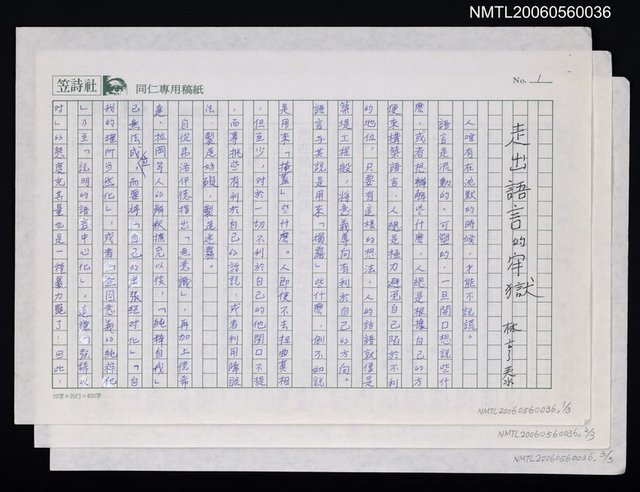 NMTL20060560036
笠詩社
同仁專用稿紙
No. 1
走出語言的牢獄
林亨泰
人唯有在沈默的時候,才能不說謊。
語言是流動的、可塑的,一旦開口想說些什
麼,或者想辯解些什麼,人總是根據自己的方
便來構築語言,人總是極力避免自己陷於不利
的地位,只要有這樣的想法,人的話語就像是
築堤工程般,將意義導向有利於自己的方向。
語言與其說是用來「揭露」些什麼,倒不如說
是用來「掩蓋」些什麼。人即使不去扭曲真相
,但至少,對於一切不利於自己的他閉口不提
,而專挑些有利於自己的話說,或者利用障眼
法,製造妨礙,製造迷霧。
自從弗洛伊德指出「無意識」,再加上德希
達、拉岡等人的解釋擴充以後,「純粹自我」
已無法成立,而要將「自己的主張絕對化」「自
我的理所當然化」,或者「企圖意義的純粹化
」乃至「說明的語言中心化」,這樣「敦
対」的態度充其量也是一種暴力罷了!因此,
20字×20行=400字
NMTL20060560036, 1/3
NMTL20060560036, 2/3
NMTL20060560036, 3/3